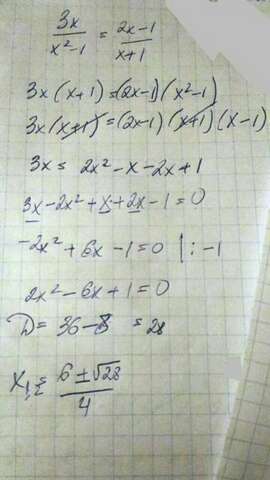 3x/(x²-1) = (2x-1)/(x+1)
3x(x+1)=(2x-1)(x²-1)
3x(x+1)=(2x-1)(x+1)(x-1)
3x = 2x²-x-2x+1
3x-2x²+x+2x-1=0
-2x²+6x-1=0 |:-1
2x²-6x+1=0
D=36-8=28
x₁,₂ = (6±√28)/4